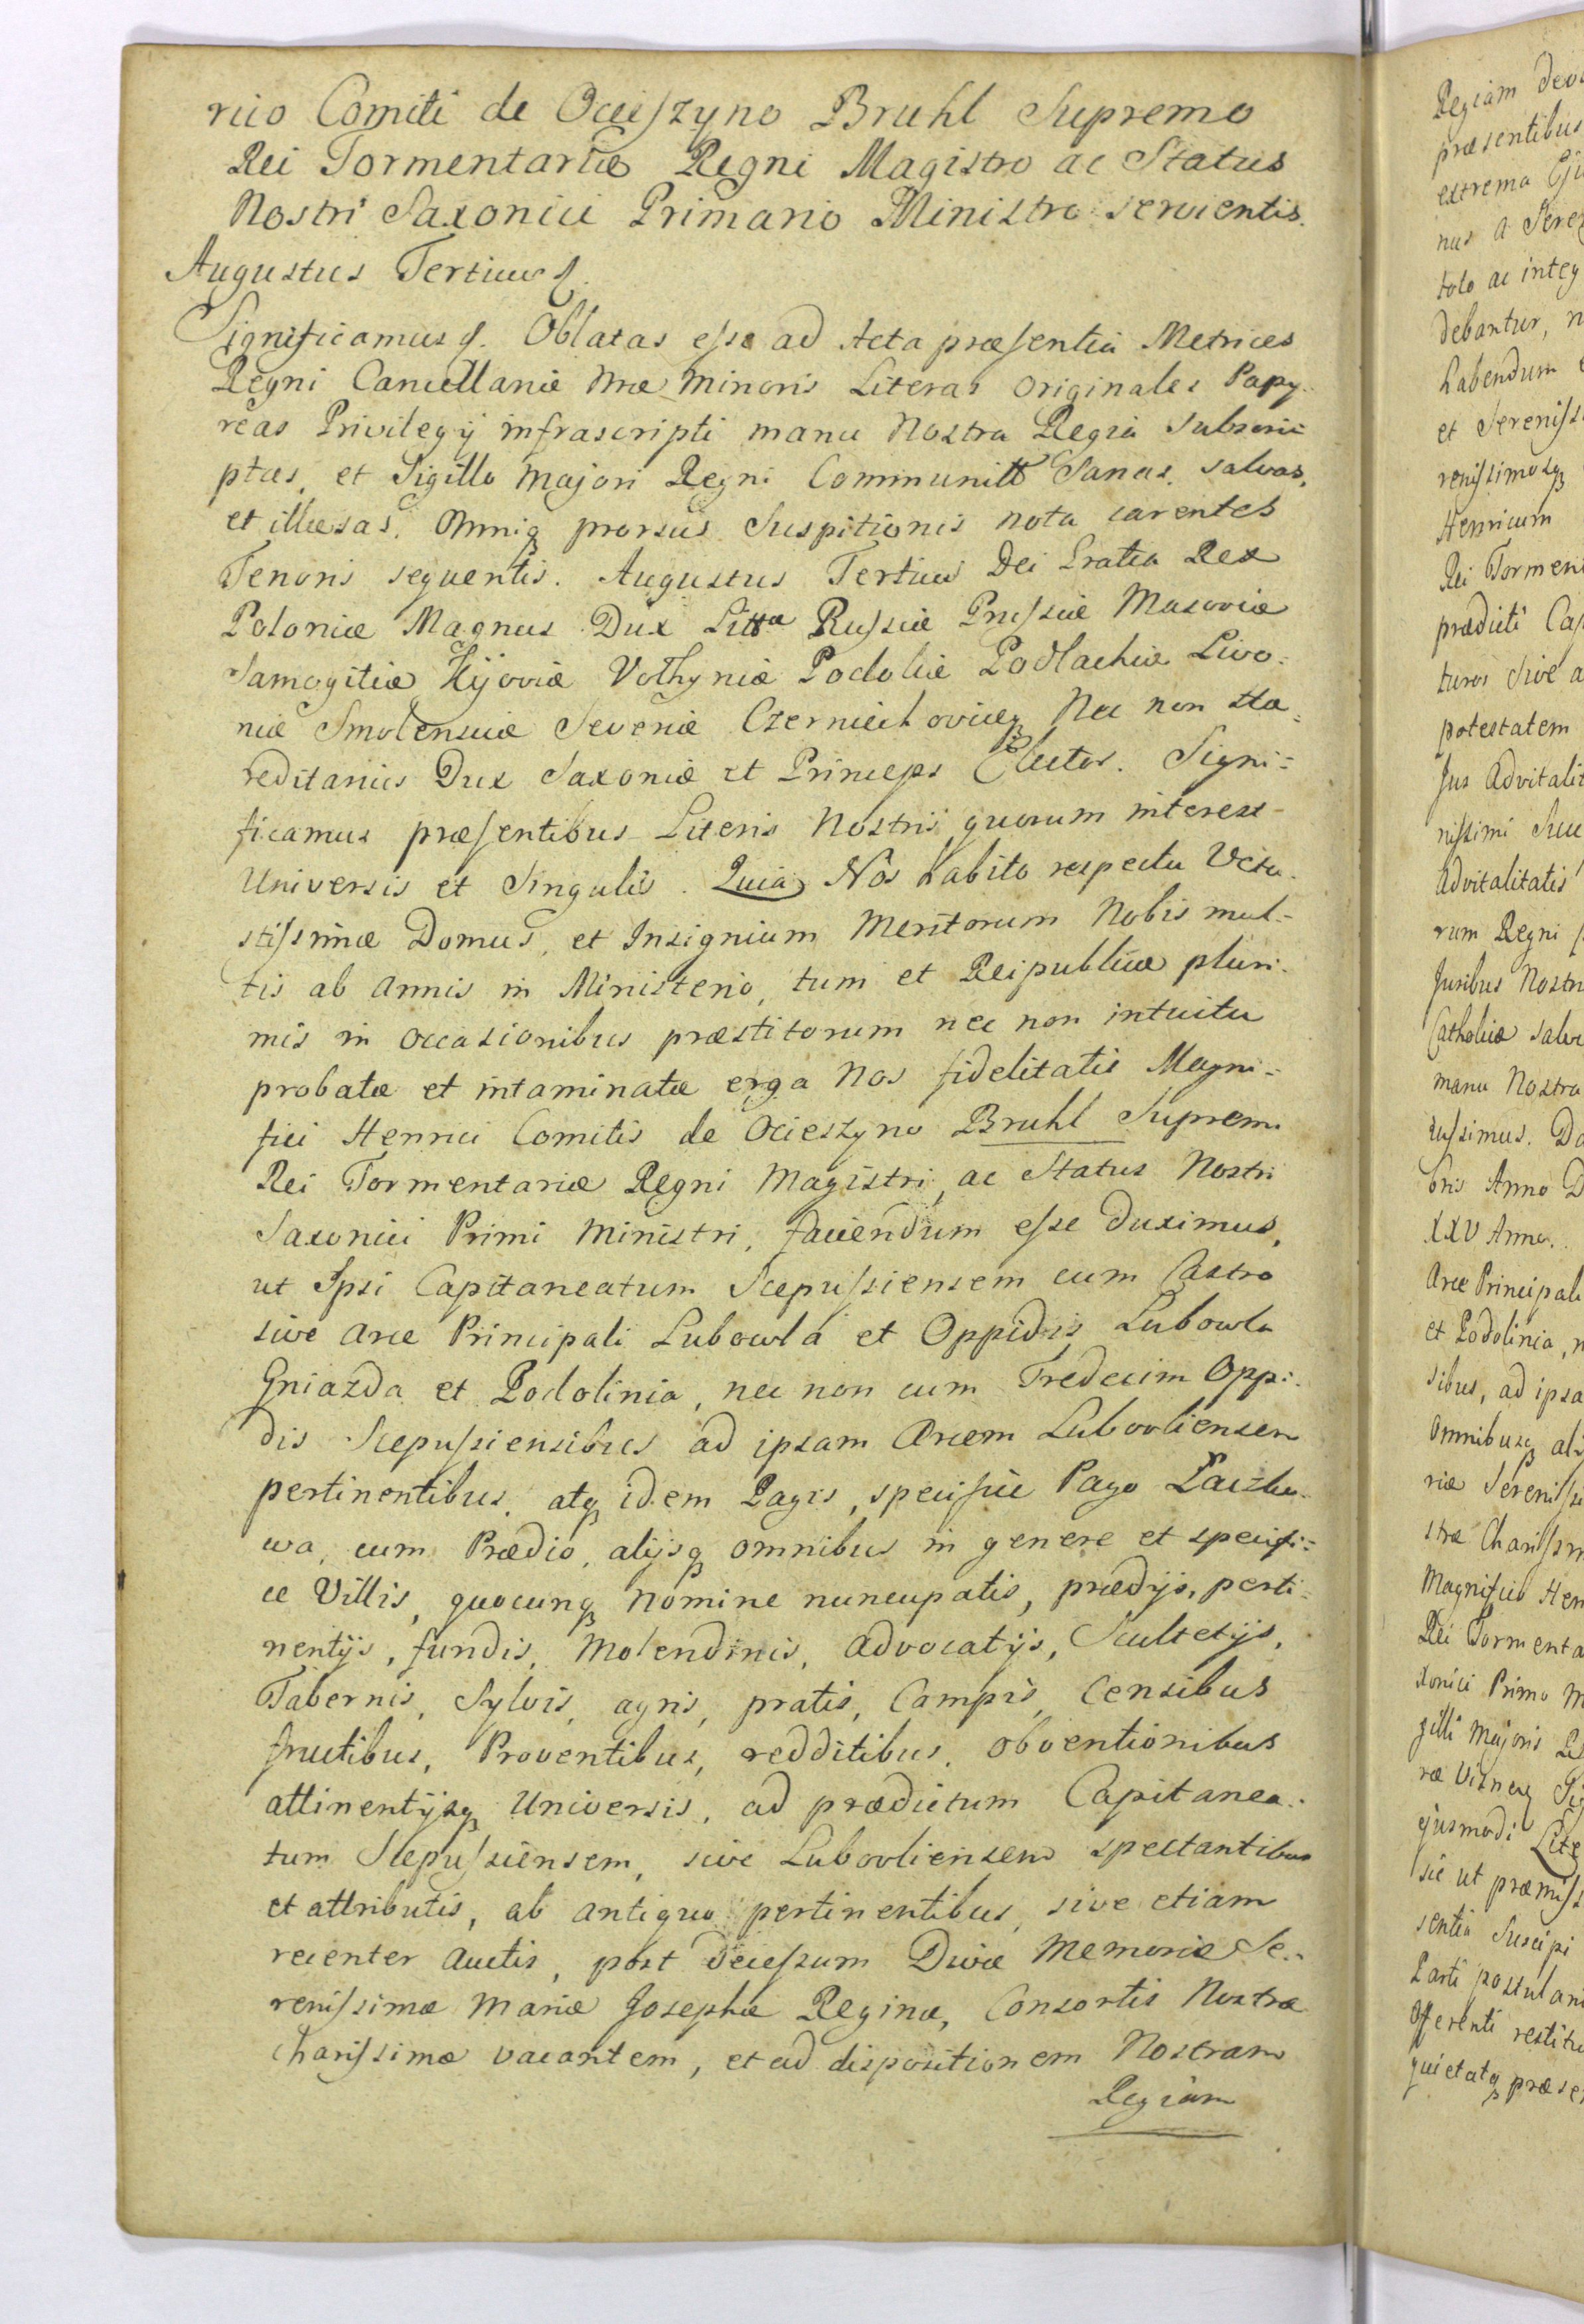 rico Comiti de Ocieszyno Bruhl Supremo
Rei Tormentariæ Regni Magistro ac Status
Nostri Saxonici Primario Ministro servientis.
Augustus Tertius
Significamus Oblatas esse ad Acta præsentia Metrices
Regni Cancellariæ Nræ Minoris Literas Originales Papy-
reas Privilegÿ infrascripti manu Nostra Regia Subscri-
ptas, et Sigillo Majori Regni Communitas Sanas, salvas,
et illæsas, Omniq prorsus Suspitionis nota carentes
Tenoris sequentis. Augustus Tertius Dei Gratia Rex
Poloniæ Magnus Dux Littæ Russiæ Prussiæ Masoviæ
Samogitiæ Kijoviæ Volhyniæ Podoliæ Podlachiæ Livo-
niæ Smolensciæ Severiæ Czerniechoviæq Nec non Hæ-
reditarius Dux Saxoniæ et Princeps Elector. Signi-
ficamus præsentibus Literis Nostris quorum interest
Universis et Singulis. Quia Nos habito respectu Vetu-
stissimæ Domus, et Insignium Meritorum Nobis mul-
tis ab annis in Ministerio, tum et Reipublicæ pluri-
mis in occasionibus præstitorum nec non intuitu
probatæ et intaminatæ erga Nos fidelitatis Magni-
fici Henrici Comitis de Ocieszyno Bruhl Supremi
Rei Tormentariæ Regni Magistri, ac Status Nostri
Saxonici Primi Ministri, faciendum esse duximus,
ut Ipsi Capitaneatum Scepussiensem cum Castro
sive Arce Principali Lubowlá et Oppidis Lubowla
Gniazda et Podolinia, nec non cum Tredecim Oppi-
dis Scepusiensibus ad ipsam Arcem Lubovliensem
pertinentibus, atq idem Pagis, specifice Pago
wa, cum Prædio, alijsq omnibus in genere et specifi-
ce Villis, quocunq Nomine nuncupatis, prædijs, perti-
nentijs, fundis, Molendinis, Advocatijs, Scultetijs,
Tabernis, Sylvis, agris, pratis, Campis, Censibus
fructibus, Proventibus, redditibus, obventionibus
attinentijsq Universis, ad prædictum Capitanea-
tum Scepussiensem, sive Lubovliensem spectantibus
et attributis, ab antiquo pertinentibus, sive etiam
recenter Auctis, post decessum Divæ Memoriæ Se-
renissimæ Mariæ Josephæ Reginæ, Consortis Nostræ
Charissimæ vacantem, et ad dispositionem Nostram
Regiam
Regiam
præsentibus
extrema
nus a
toto ac integ
debantur, n
habendum
et Sereniss
renissimosq
Henricum
Rei Tormen
prædicti Cap
turos sive a
potestatem
Jus Advitalit
nissimi Succ
Advitalitatis
rum Regni
Juribus Nostri
Catholicæ salv
manu Nostra
russimus. Da
bris Anno D
XXV Anno.
Arce Principali
et Podolinia, n
sibus, ad ipsa
omnibusq ali
riæ Sereniss
stræ Charissim
Magnifico Hen
Rei Tormenta
xonici Primo M
gilli Majoris Re
ræ
ejusmodi Lite
sic ut præmiss
sentia Suscipi
Parti postulan
Offerenti restitu
quietatq præse